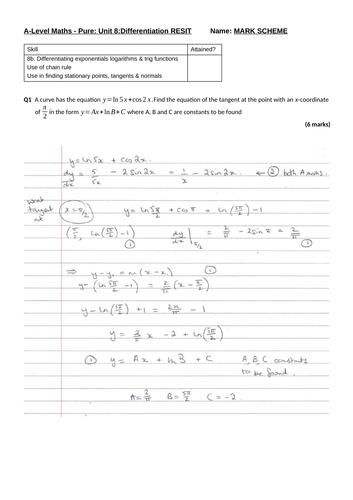 A-Level Maths - Pure: Unit 8:Differentiation RESIT Name: MARK SCHEME
Skill Attained?
8b. Differentiating exponentials logarithms & trig functions
Use of chain rule
Use in finding stationary points, tangents & normals
Q1 A curve has the equation y=ln 5x+cos 2x.Find the equation of the tangent at the point with an x-coordinate
of π/2 in the form y=Ax+ln B+C where A, B and C are constants to be found
(6 marks)
y = ln 5x + cos 2x.
dy/dx = 5/5x - 2 sin 2x = 1/x - 2 sin 2x. ← ② both A marks.
want tangent at x = π/2 y = ln 5π/2 + cos π = ln(5π/2) - 1
(π/2, ln(5π/2) - 1) ① dy/dx |π/2 = 2/π - 2 sin π = 2/π ①
⇒ y - y₁ = m(x - x₁) ①
y - (ln 5π/2 - 1) = 2/π (x - π/2)
y - ln(5π/2) + 1 = 2x/π - 1
y = 2/π x - 2 + ln(5π/2)
① y = Ax + ln B + C A, B, C constants
to be found.
A = 2/π B = 5π/2 C = -2